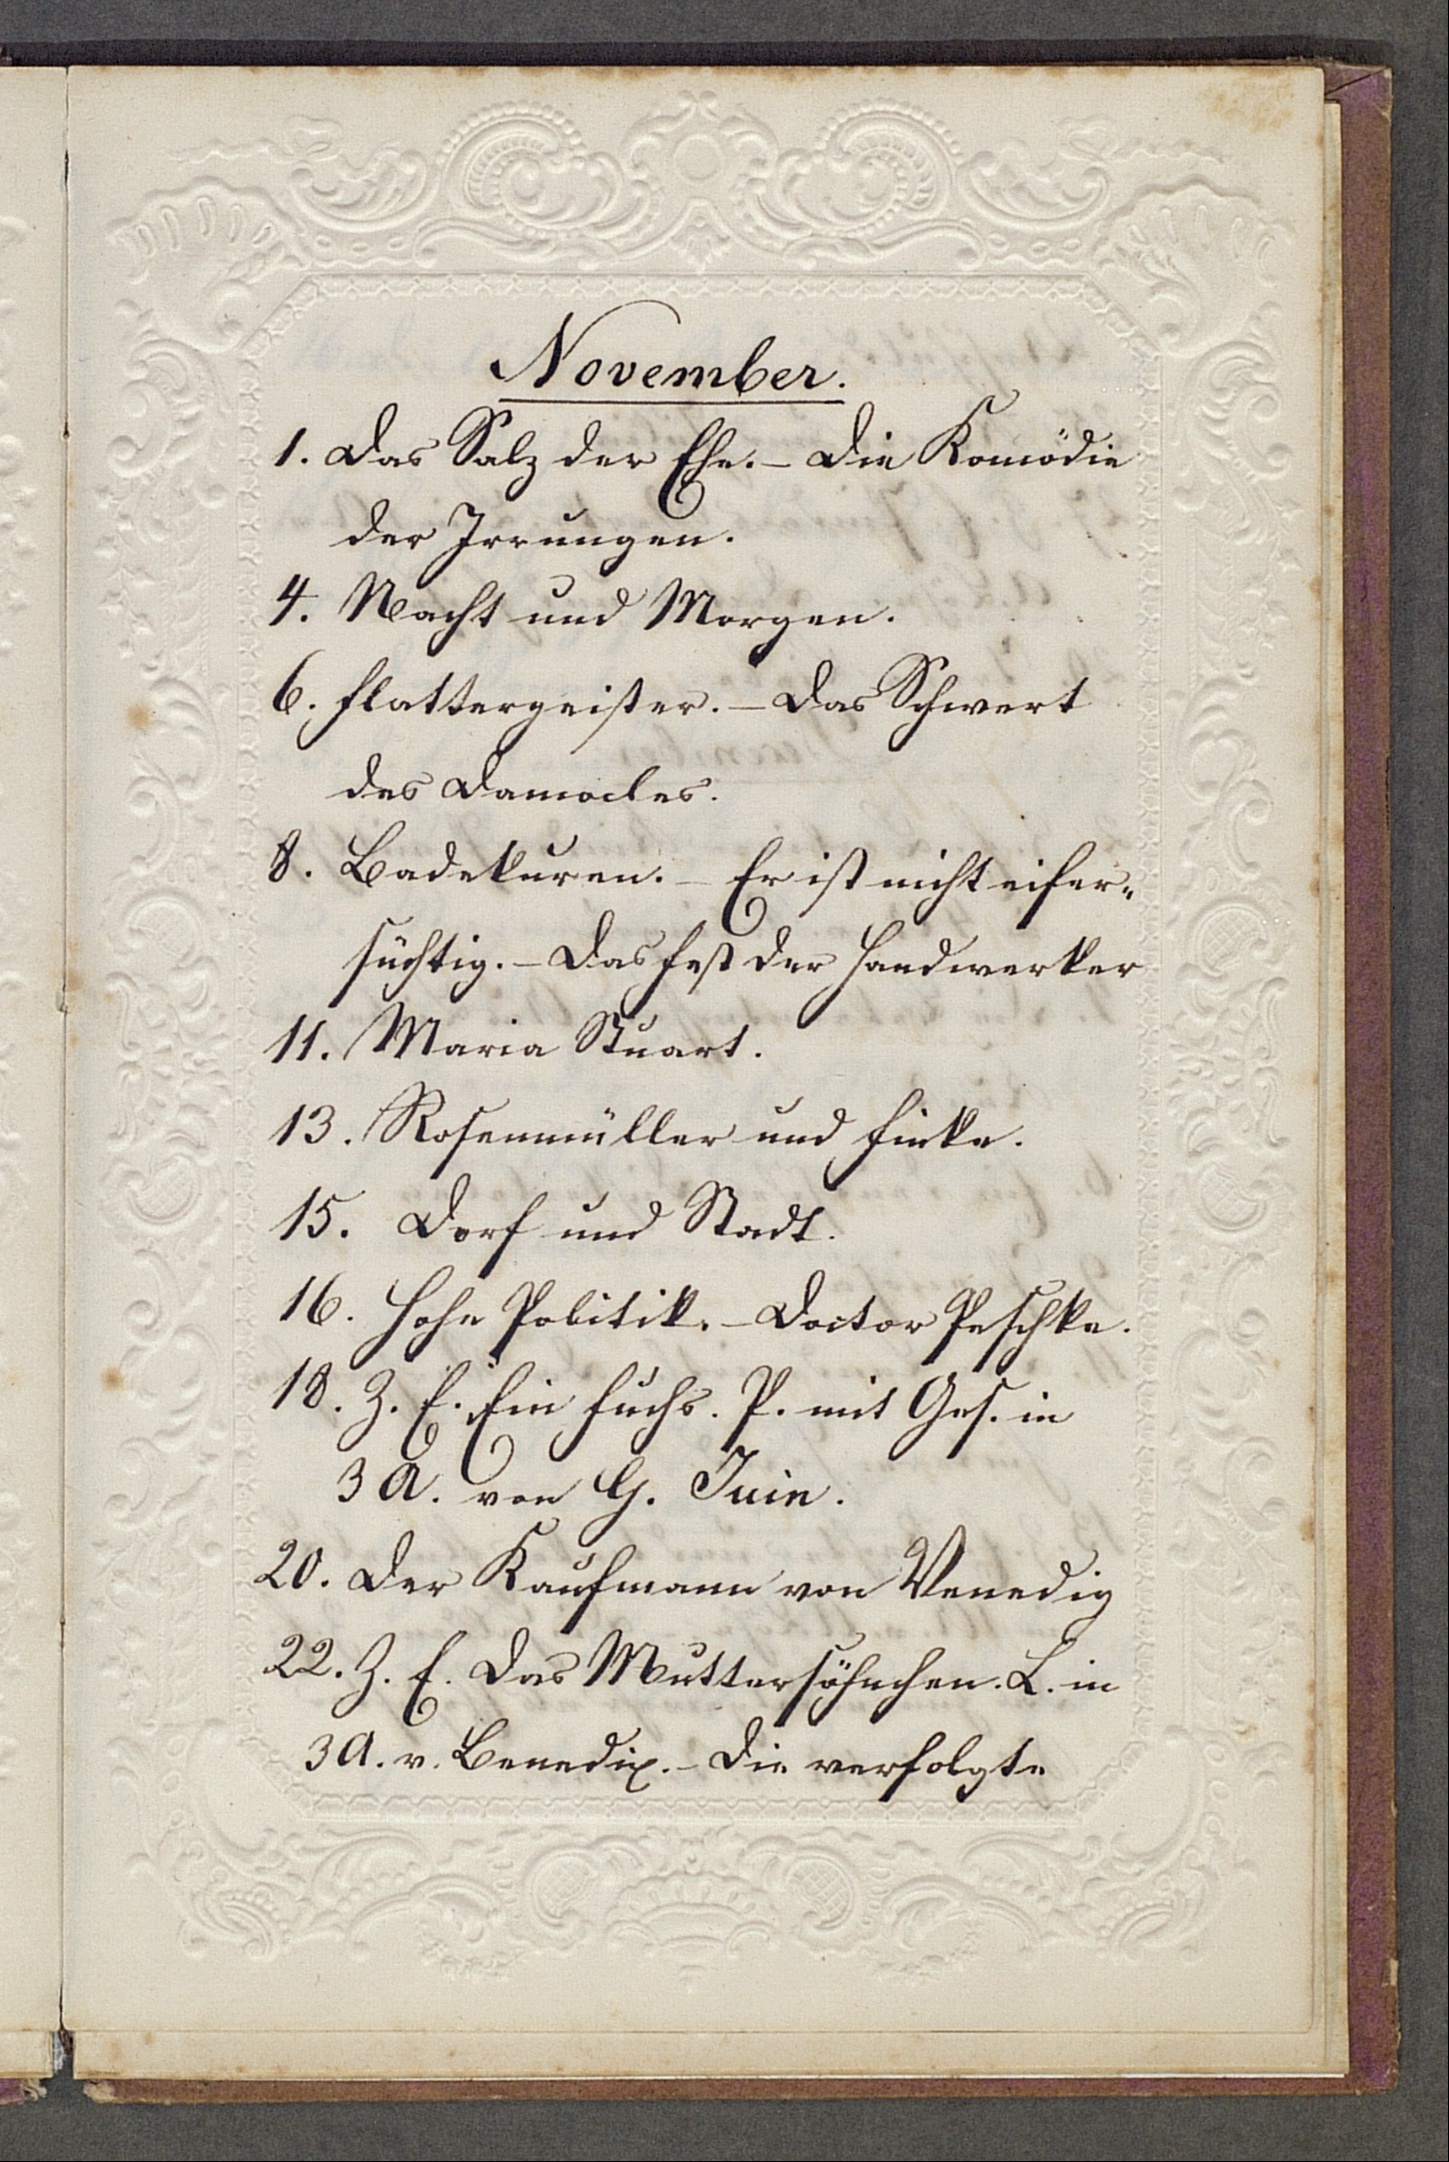 November.
1. Das Salz der Ehe. – Die Komödie
der Irrungen.
4. Nacht und Morgen.
6. Flattergeister. – Das Schwert
des Damocles.
8. Badekuren. – Er ist nicht eifer„
süchtig. – Das Fest der Handwerker
11. Maria Stuart.
13. Rosenmüller und Finke.
15. Dorf und Stadt.
16. Hohe Politik. – Doctor Peschke.
18. Z. E. Ein Fuchs. P. mit Ges. in
3 A. von G. Juin.
20. Der Kaufmann von Venedig
22. Z. E. Das Muttersöhnchen. L. in
3 A. v. Benedix. – Die verfolgte